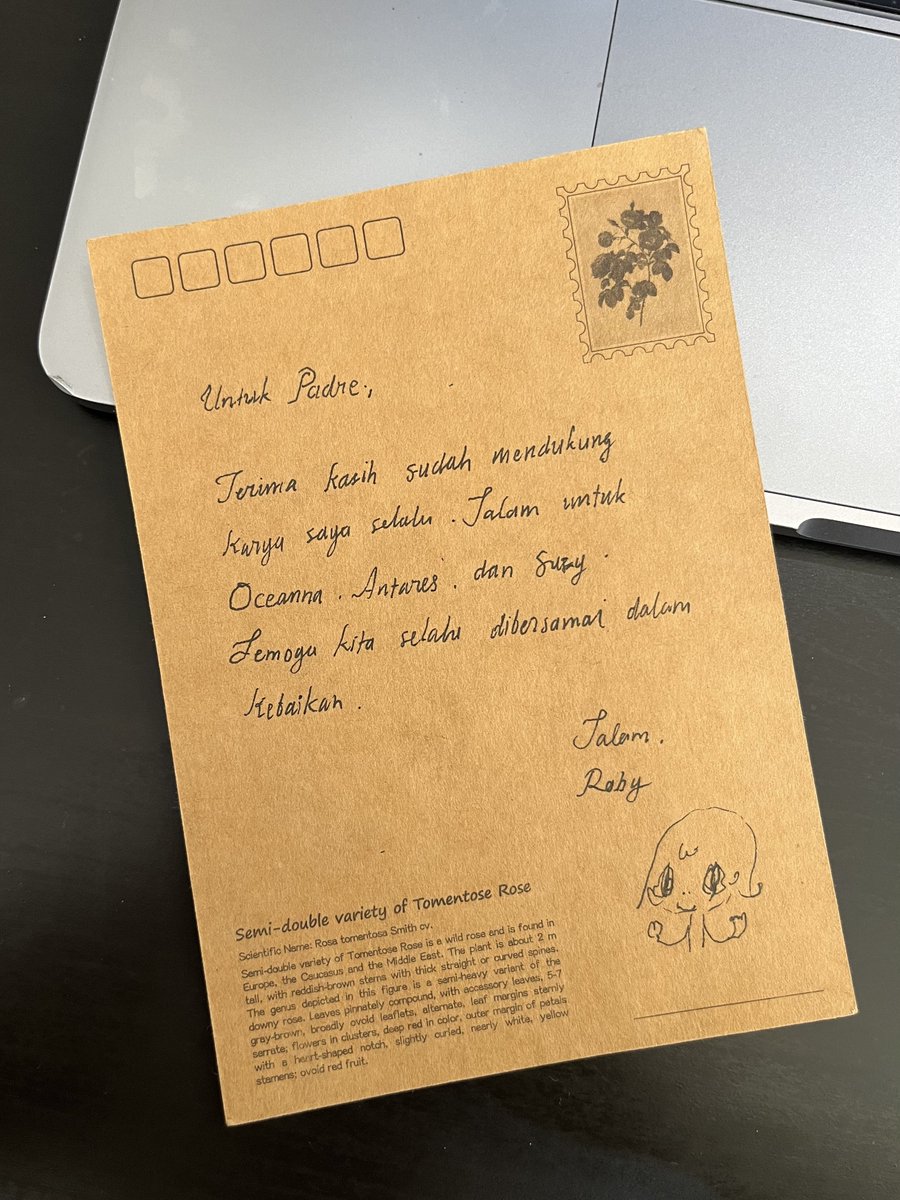 Untuk Padre.,
Terima kasih sudah mendukung
karya saya selalu. Salam untuk
Oceanna. Antares. dan Suzy.
Semoga kita selalu dibersamai dalam
kebaikan.
Salam.
Roby
Semi-double variety of Tomentose Rose
Scientific Name: Rosa tomentosa Smith cv.
Semi-double variety of Tomentose Rose is a wild rose and is found in
Europe, the Caucasus and the Middle East. The plant is about 2 m
tall, with reddish-brown stems with thick straight or curved spines.
The genus depicted in this figure is a semi-heavy variant of the
downy rose. Leaves pinnately compound, with accessory leaves, 5-7
gray-brown, broadly ovoid leaflets, alternate, leaf margins sternly
serrate; flowers in clusters, deep red in color, outer margin of petals
with a heart-shaped notch, slightly curled, nearly white, yellow
stamens; ovoid red fruit.